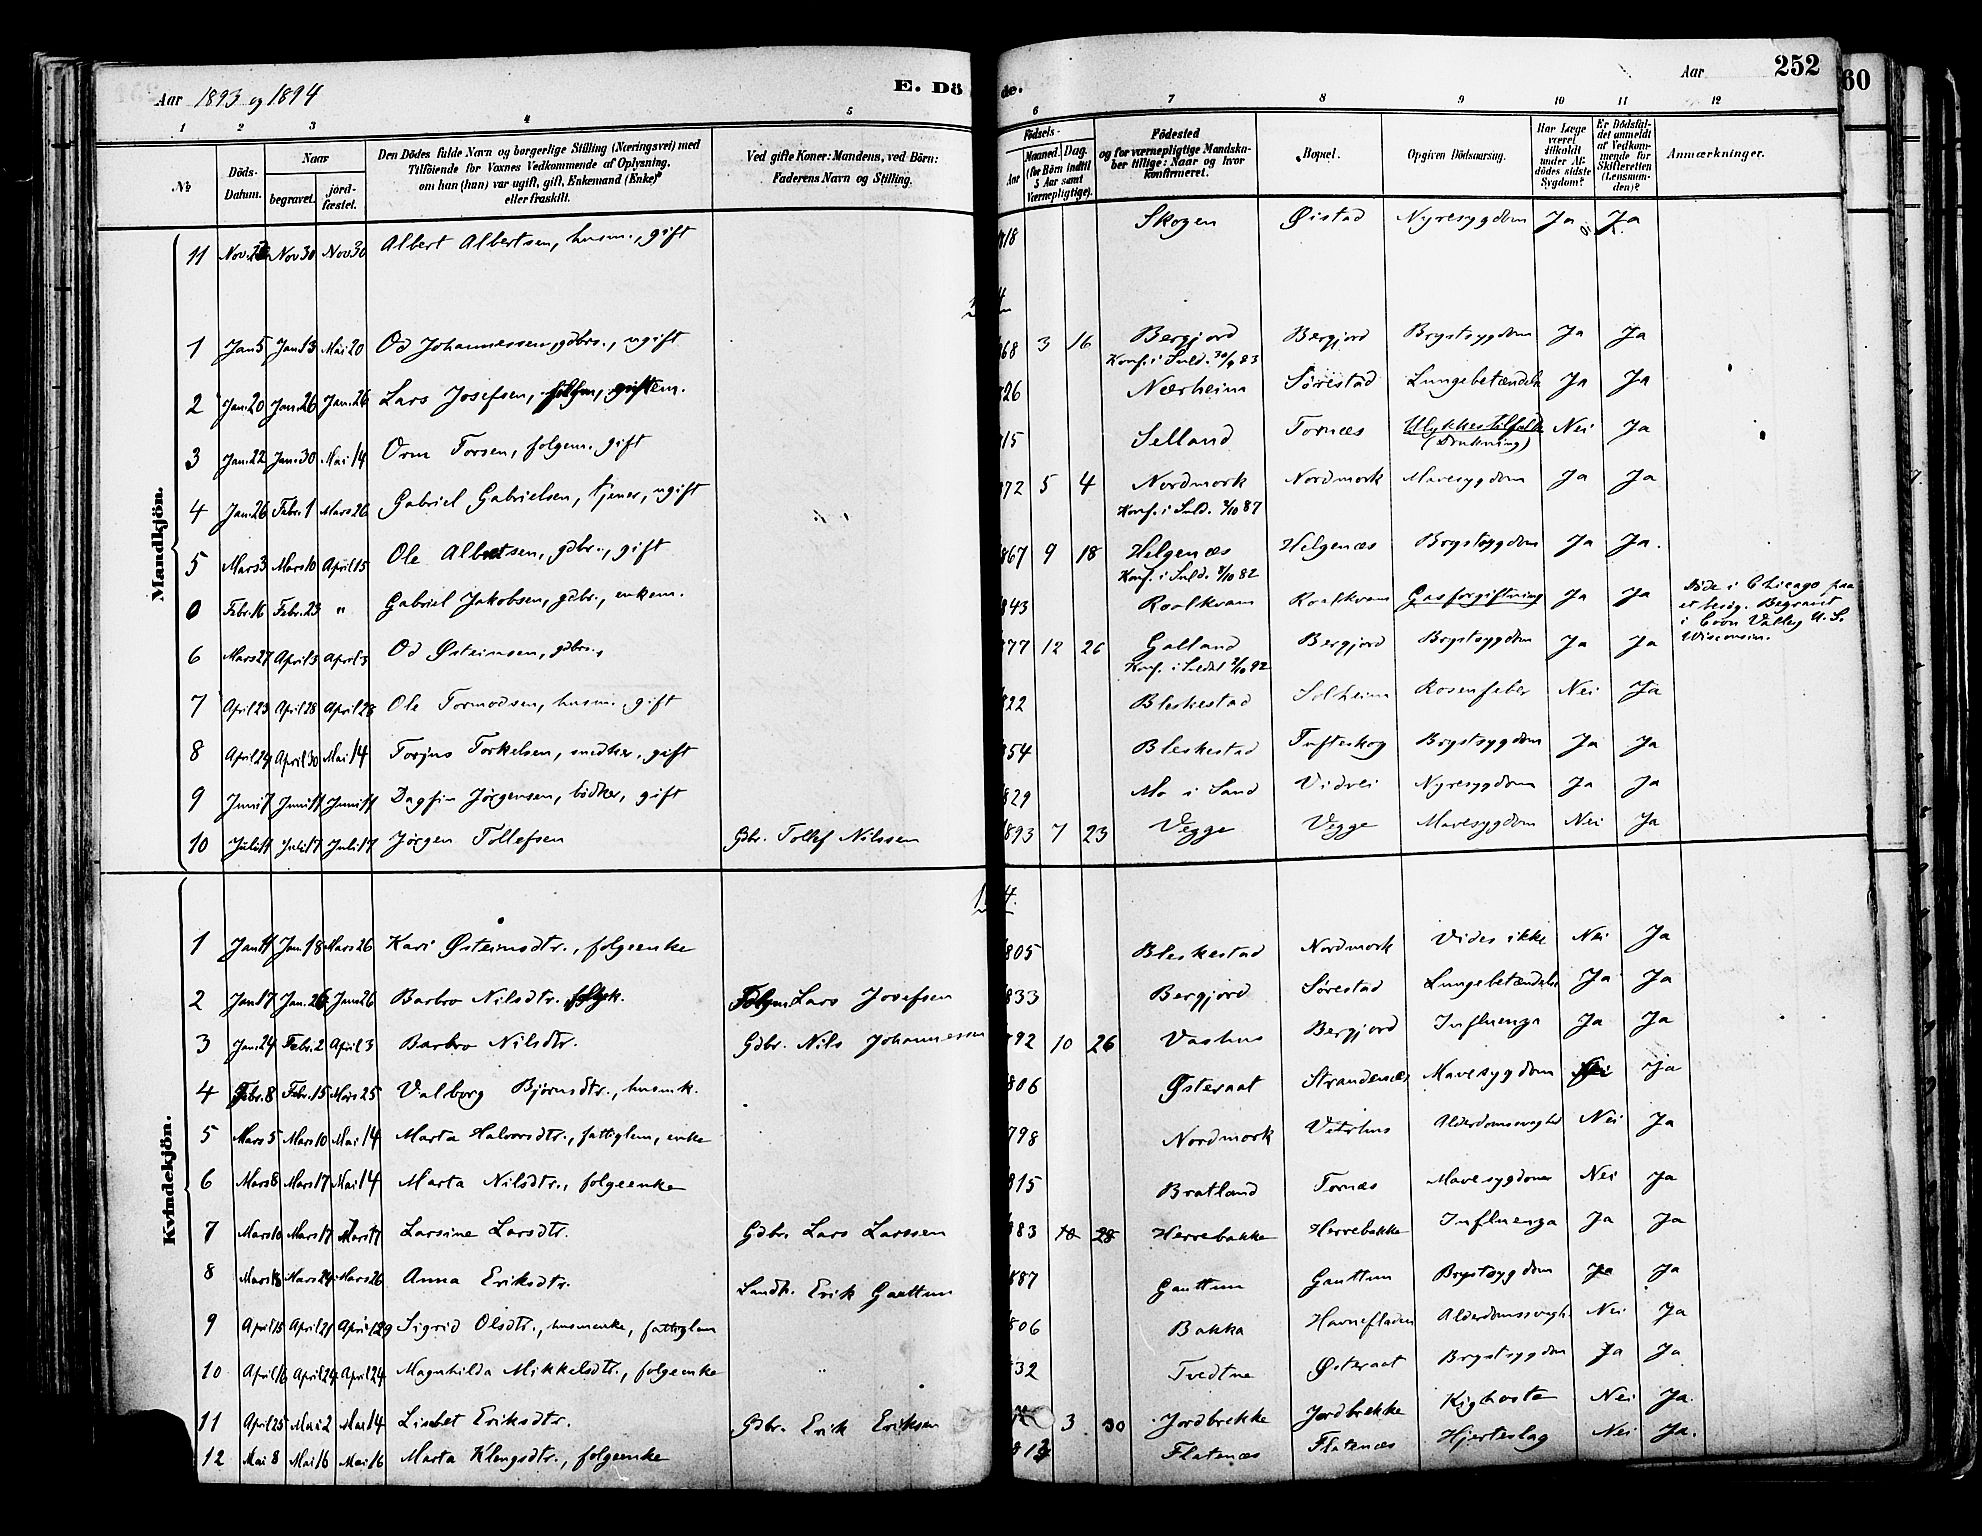 Aar 1893 og 1894
E. Dö
de.
Aar 252
60
1 2 3 4 5 6 7 8 9 10 11 12
No
Döds-Datum.
Naar begravet. jordfæstet.
Den Dödes fulde Navn og borgerlige Stilling (Næringsvei) med Tilföiende for Voxnes Vedkommende af Oplysning, om han (hun) var ugift, gift, Enkemand (Enke) eller fraskilt.
Ved gifte Koner: Mandens, ved Börn: Faderens Navn og Stilling.
Födsels- Aar Maaned. Dag. (for Börn indtil 5 Aar samt Værnepligtige).
Födested og for værnepligtige Mandskaber tillige: Naar og hvor konfirmeret.
Bopæl.
Opgiven Dödsaarsag.
Har Læge været tilkaldt under Afdödes sidste Sygdom?
Er Dödsfaldet anmeldt af Vedkommende for Skifteretten (Lensmanden)?
Anmærkninger.
Mandkjön.
11 Nov. Nov 30 Nov 30 Albert Albertsen, husm., gift 818 Skogen Øistad Nyresygdom Ja Ja
1 Jan 5 Jan 13 Mai 20 Od Johannessen, gdbrs., ugift 868 3 16 Bergjord Bergjord Brystsygdom Ja Ja
Konf. i Suld. 30/9 83
2 Jan. 20 Jan. 26 Jan. 26 Lars Josefsen, folgem. 826 Nærheim Sørestad Lungebetændelse Ja Ja
3 Jan. 22 Jan. 30 Mai 14 Orm Torsen, folgem. gift 815 Selland Tornæs Ulykkestilfælde Nei Ja
(Drukning)
4 Jan. 26 Febr. 1 Mars 26 Gabriel Gabrielsen, tjener, ugift 872 5 4 Nordmork Nordmork Mavesygdom Ja Ja
Konf. i Suld. 2/10 87
5 Mars 3 Mars 10 April 15 Ole Albertsen, gdbr., gift 867 9 18 Helgenæs Helgenæs Brystsygdom Ja Ja.
Konf. i Suld. 8/10 82
0 Febr. 16 Febr. 23 " Gabriel Jakobsen, gdbr., enkem. 843 Roalkvam Roalkvam Gasforgiftning Ja Ja
Døde i Chicago paa
et besøg. Begravet
i Coon Valley U. S.
Wisconsin.
6 Mars 27 April 3 April 3 Od Østeinsen, gdbrs., 877 12 26 Galland Bergjord Brystsygdom Ja Ja
Konf. i Suldal 2/10 92
7 April 23 April 28 April 28 Ole Tormodsen, husm., gift 822 Bleskestad Solheim Rosenfeber Nei Ja
8 April 24 April 30 Mai 14 Torjus Torkelsen, snedker, gift 854 Bleskestad Tufteskog Brystsygdom Ja Ja
9 Juni 7 Juni 17 Juni 17 Dagfin Jørgensen, bødker, gift 829 Mo i Sand Vidvei Nyresygdom Ja Ja
10 Juli 11 Juli 17 Juli 17 Jørgen Tollefsen Gdbr. Tollef Nilssen 1893 7 23 Vegge Vegge Mavesygdom Nei Ja
Kvindekjön.
1 Jan 11 Jan. 18 Mars 26 Kari Østeinsdtr., folgeenke 805 Bleskestad Nordmork Vides ikke Nei Ja
2 Jan 17 Jan. 26 Jan 26 Barbro Nilsdtr. folgek. Folgem Lars Josefsen 833 Bergjord Sørestad Lungebetændelse Ja Ja
3 Jan. 24 Febr. 2 April 3 Barbro Nilsdtr. Gdbr. Nils Johannessen 892 10 26 Vashus Bergjord Influenza Ja Ja
4 Febr. 8 Febr. 15 Mars 25 Valborg Bjørnsdtr., husmk. 806 Østeraat Strandenæs Mavesygdom Ja
5 Mars 5 Mars 10 Mai 14 Marta Halvorsdtr., fattiglem, enke 798 Nordmork Vetrhus Alderdomssvaghed Nei Ja
6 Mars 8 Mars 17 Mai 14 Marta Nilsdtr., folgeenke 815 Bratland Tornæs Mavesygdomen Nei Ja
7 Mars 10 Mars 17 Mars 17 Larsine Larsdtr. Gdbr. Lars Larssen 883 10 28 Herrebakke Herrebakke Influenza Ja Ja
8 Mars 18 Mars 24 Mars 26 Anna Eriksdtr. Landh. Erik Gauttun 887 Gauttun Gauttun Brystsygdom Ja Ja
9 April 15 April 21 April 29 Sigrid Olsdtr., husmenke, fattiglem 806 Bakka Havrefladen Alderdomssvagh. Nei Ja
10 April 16 April 24 April 24 Magnhilda Mikkelsdtr., folgeenke 832 Tvedtne Østeraat Brystsygdom Ja Ja
11 April 25 Mai 2 Mai 14 Lisbet Eriksdtr. Gdbr. Erik Eriksen 3 30 Jordbrekke Jordbrekke Kighoste Nei Ja.
12 Mai 8 Mai 16 Mai 16 Marta Klengsdtr., folgeenke Flatenæs Flatenæs Hjerteslag Nei Ja.